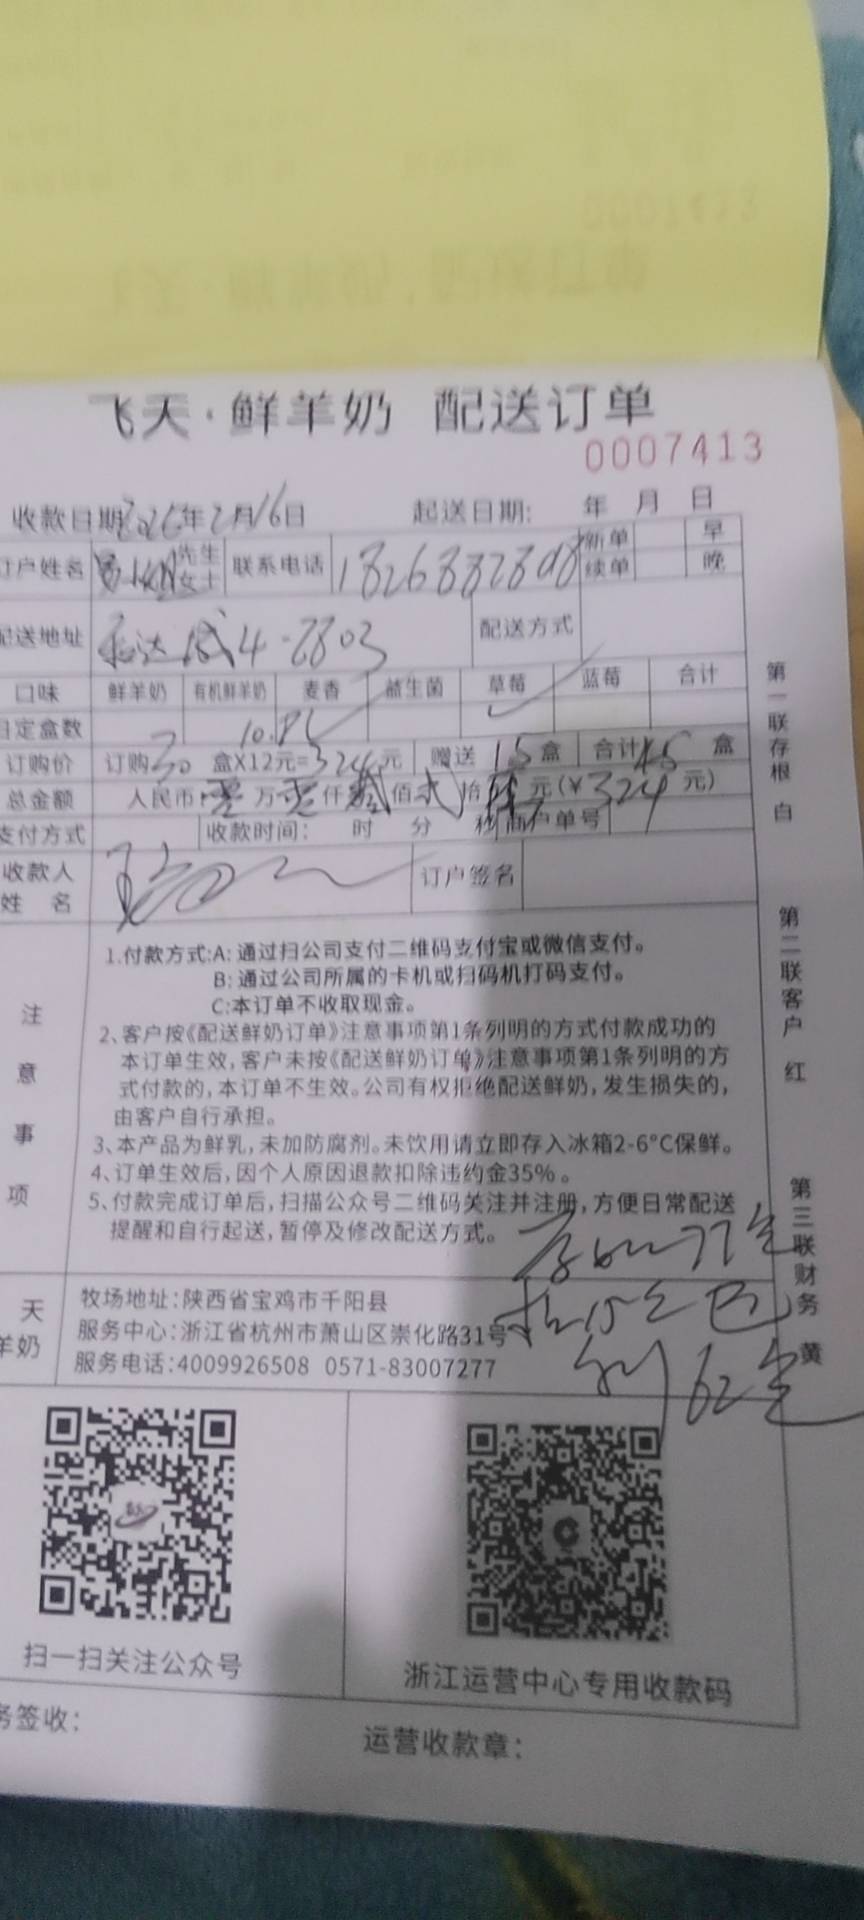 飞天·鲜羊奶 配送订单
0007413
收款日期 年2月16日 起送日期: 年 月 日
订户姓名 先生 女士 联系电话 新单 续单 早 晚
配送地址 4-2803 配送方式
口味 鲜羊奶 有机鲜羊奶 麦香 益生菌 草莓 蓝莓 合计
日定盒数
订购价 订购30盒X12元=324元 赠送15盒 合计45盒
总金额 人民币:零万零仟叁佰贰拾 元(¥324元)
支付方式 收款时间: 时 分 秒 商户单号
收款人姓名 订户签名
注意事项
1.付款方式:A: 通过扫公司支付二维码支付宝或微信支付。
B: 通过公司所属的卡机或扫码机打码支付。
C:本订单不收取现金。
2、客户按《配送鲜奶订单》注意事项第1条列明的方式付款成功的
本订单生效,客户未按《配送鲜奶订单》注意事项第1条列明的方
式付款的,本订单不生效。公司有权拒绝配送鲜奶,发生损失的,
由客户自行承担。
3、本产品为鲜乳,未加防腐剂。未饮用请立即存入冰箱2-6°C保鲜。
4、订单生效后,因个人原因退款扣除违约金35%。
5、付款完成订单后,扫描公众号二维码关注并注册,方便日常配送
提醒和自行起送,暂停及修改配送方式。
天
羊奶
牧场地址:陕西省宝鸡市千阳县
服务中心:浙江省杭州市萧山区崇化路31号
服务电话:4009926508 0571-83007277
扫一扫关注公众号
浙江运营中心专用收款码
务签收:
运营收款章:
第一联存根 白
第二联客户 红
第三联财务 黄